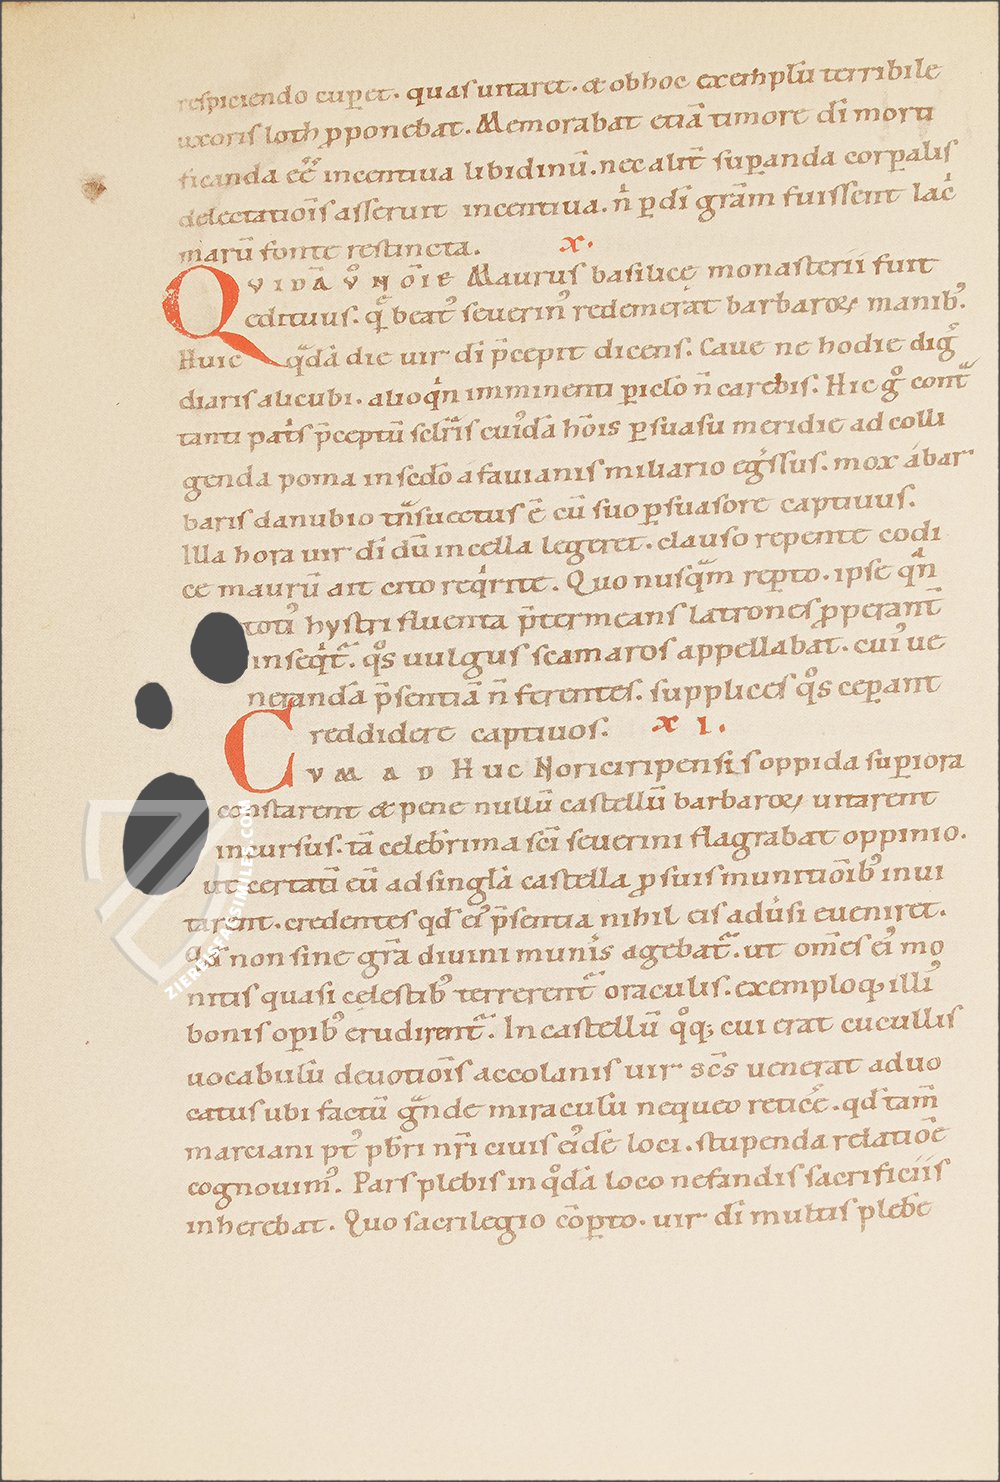 respiciendo cuperet. quas uitaret. & ob hoc exemplū terribile
uxoris loth ꝓponebat. Memorabat etiā timore dī morti
ficanda eē incentiua libidinū. nec alit̄ suꝑanda corꝑalis
delectatiōis asserunt incentiua. n̄ ꝑ dī grām fuissent lac
marū fonte restincta. x.
QVIDĀ V̊ NOĪE Maurus basilicę monasterii fuit
edituus. quē beat᾽ seuerin᾽ redemerat barbaroꝝ manib᾽.
Huic quadā die uir dī p̄cepit dicens. Caue ne hodie dig
diaris alicubi. alioqⁱn imminenti ꝑiclo n̄ carebis. Hic gͦ cont̄
tanti pat̄s p̄ceptū sclr̄is cui᾽dā hōis ꝑsuasu meridie ad colli
genda poma in sedo a fauianis miliario egr̄ssus. mox a bar
baris danubio tn̄suectus ē cū suo ꝑsuasore captiuus.
Illa hora uir dī dū in cella legeret. clauso repente codi
ce maurū ait cito reqⁱrite. Quo nusqᵃm reꝑto. ipse qᵃn
toti᾽ hystri fluenta p̄termeans latrones ꝓperant̄
inseqⁱt᷑. qͦs uulgus scamaros appellabat. cui᾽ ue
nerandā p̄sentiā n̄ ferentes. supplices qͦs ceꝑant
reddidere captiuos. xI.
CVM AD Huc Noricⁱripensis oppida suꝑiora
constarent & pene nullū castellū barbaroꝝ uitarent
incursus. tā celeberrima scī seuerini flagrabat oppinio.
ut certatī eū ad singlā castella ꝓ suis munitiōib᾽ inui
tarent. credentes qd̄ ei᾽ p̄sentia nihil eis adūsi eueniret.
Qd̄ non sine grā diuini munis agebat᷑. ut omēs ei᾽ mo
nitis quasi cęlestib᾽ terrerent᷑ oraculis. exemploq; illi᾽
bonis oꝑib᾽ erudirent᷑. In castellū qͦq; cui erat cucullis
uocabulū deuotiōis accolanis uir scs uenerat aduo
catus ubi factū gᵃnde miraculū nequeo reticē. qd̄ tam̄
marciani pt᾽ pbr̄i nr̄i ciuis ei᾽dē loci. stupenda relatiōe
cognouim᾽. Pars plebis in qͦdā loco nefandis sacrificiis
inherebat. Quo sacrilegio cōꝑto. uir dī multis plebē
ZIEREIS FACSIMILES.COM